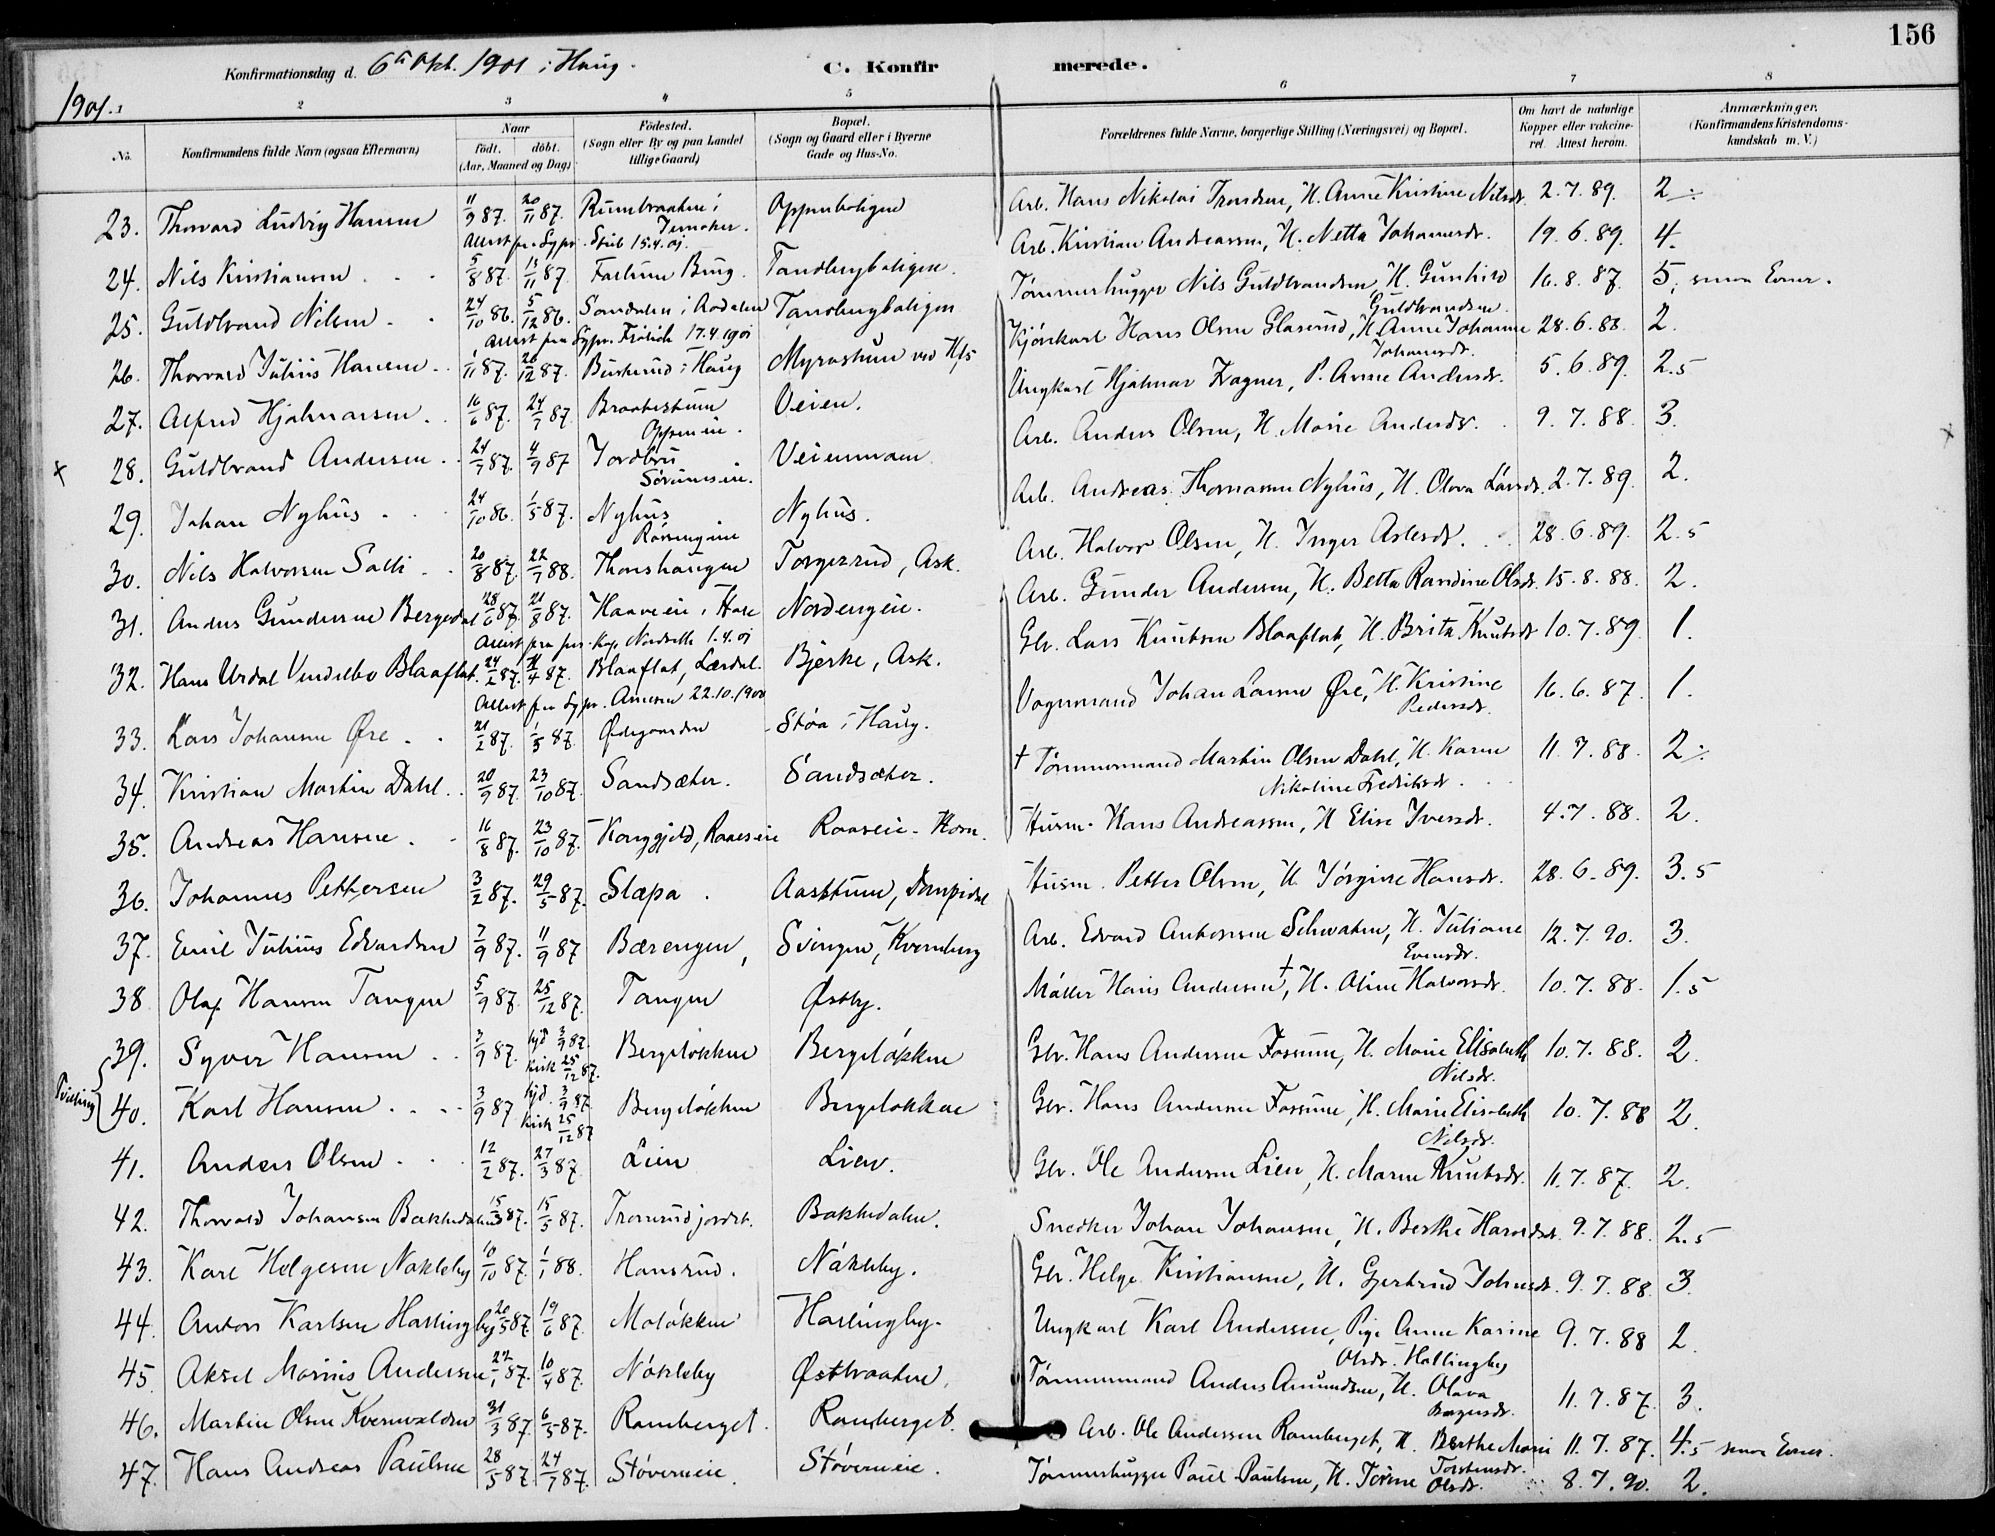 156
Konfirmationsdag d. 6te Okt. 1901 i Haug.
C. Konfirmerede.
1901.
1 2 3 4 5 6 7 8
No. Konfirmandens fulde Navn (ogsaa Efternavn) Naar født. døbt. (Aar, Maaned og Dag) Fødested. (Sogn eller By og paa Landet tillige Gaard) Bopæl. (Sogn og Gaard eller i Byerne Gade og Hus-No. Forældrenes fulde Navne, borgerlige Stilling (Næringsvei) og Bopæl. Om havt de naturlige Kopper eller vakcineret. Attest herom. Anmærkninger. (Konfirmandens Kristendomskundskab m. V.)
23. Thorvard Ludvig Hansen 11/9 87. 20/11 87. Rumbraaten i Jevnaker. Oppenboligen Arb. Hans Nikolai Trondsen, H. Anne Kristine Nilsdr. 2.7.89. 2 ÷
Attest fra Sgpr. 15.4.01.
24. Nils Kristiansen 5/8 87. 13/11 87 Fastum Brug. Tandbergboligen. Arb. Kristian Andreassen, H. Netta Johannesdr. 19.6.89. 4.
25. Guldbrand Nilsen 24/10 86. 5/12 86. Sandalen i Aadalen Tandbergboligen Tømmerhugger Nils Guldbrandsen, H. Gunhild Guldbrandsen. 16.8.87. 5, smaa Evner.
Attest fra Sgpr. Frölich 17.4.1901
26. Thorvard Julius Hansen 1/11 87. 26/12 87. Buskerud i Haug Myrastuen ved Hfs Kjørekarl Hans Olsen Glaserud, H. Anne Johanne Johannesdr. 28.6.88. 2.
27. Alfred Hjalmarsen 16/6 87. 24/7 87. Braatestuen Oppeneie. Veien. Ungkarl Hjalmar Fragner, P. Anne Andersdr. 5.6.89. 2.5
x 28. Guldbrand Andersen 24/7 87. 4/9 87 Jordbru Sørumseie. Veienmoen Arb. Anders Olsen, H. Marie Andersdr. 9.7.88. 3. x
29. Johan Nyhus 24/10 86. 1/5 87. Nyhus Røssengeie Nyhus. Arb. Andreas Thomassen Nyhus, H. Olava Larsdr. 2.7.89. 2.
30. Nils Halvorsen Solli 20/8 87. 22/7 88. Thonshaugen Torgersrud, Ask. Arb. Halvor Olsen, H. Inger Aslesdr. 28.6.89. 2.5
31. Anders Gundersen Bergedal 28/6 87. 21/8 87. Haaveeie, Hole Norderngeie. Arb. Gunder Andersen, H. Betta Randine Olsdr. 15.8.88. 2.
Attest fra pers. Kap. Nordseth 1.4.01
32. Hans Urdal Vindelbo Blaaflat. 24/2 87. 11/4 87. Blaaflat, Lærdal. Bjerke, Ask. Gbr. Lars Knutsen Blaaflat, H. Brita Knutsdr 10.7.89. 1.
Attest fra Sgpr. Arnesen 22.10.1900
33. Lars Johansen Øre 21/2 87. 1/5 87. Ødegaarden Støa i Haug. Vognmand Johan Larsen Øre, H. Kristine Pedersdr. 16.6.87. 1.
34. Kristian Martin Dahl 20/9 87. 23/10 87. Sandsæter. Sandsæter. † Tømmermand Martin Olsen Dahl, H. Karen Nikoline Fredriksdr. 11.7.88. 2 ÷
35. Andreas Hansen 16/8 87. 23/10 87. Konggjeld, Raaeseie Raaseie - Horn. Husm. Hans Andreassen, H. Elise Iversdr. 4.7.88. 2.
36. Johannes Pettersen 3/2 87. 29/5 87. Slæpa. Aasstuen, Dompidal Husm. Petter Olsen, H. Jørgine Hansdr. 28.6.89. 3.5
37. Emil Julius Edvardsen 7/9 87. 11/9 87 Bærengen, Svingen, Kvernberg Arb. Edvard Antonsen Schwaten, H. Juliane Evensdr. 12.7.90. 3.
38 Olaf Hansen Tangen 5/9 87. 25/12 87. Tangen Østby. Møller Hans Andersen †, H. Oline Halvorsdr. 10.7.88. 1.5
Tvilling
39. Syver Hansen 3/9 87. hjd 3/9 87. kirk 25/12 87. Bergeløkken Bergeløkken Gbr. Hans Andersen Fossum, H. Marie Elisabeth Nilsdr. 10.7.88. 2.
40. Karl Hansen 3/9 87 hjd. 3/9 87. kirk 25/12 87 Bergeløkken Bergeløkken Gbr. Hans Andersen Fossum, H. Marie Elisabeth Nilsdr. 10.7.88 2.
41. Anders Olsen 12/2 87. 27/3 87. Lien Lien. Gbr. Ole Andersen Lien, H. Maren Knutsdr. 11.7.87. 2.
42. Thorvald Johansen Bakkedalen 15/3 87. 15/5 87. Tronrud jordet. Bakkedalen. Snedker Johan Johansen, H. Berthe Haraldsdr. 9.7.88. 2.5
43. Kare Helgesen Nakleby 10/10 87. 1/1 88. Hansrud. Nakleby. Gbr. Helge Kristiansen, H. Gjertrud Johnsdr. 9.7.88. 3.
44. Anton Karlsen Hallingby 20/5 87. 19/6 87. Moløkken Hallingby. Ungkarl Karl Andersen, Pige Anne Karine Olsdr. Hallingby 9.7.88 2.
45. Aksel Marius Andersen 22/1 87. 10/4 87. Nökleby Østbraaten. Tømmermand Anders Amundsen, H. Olava 11.7.87. 3.
46. Martin Olsen Kvernvolden 31/3 87. 6/5 87. Ramberget. Ramberget. Arb. Ole Andersen Ramberget, H. Berthe Marie Torstensdr. 11.7.87. 4.5 smaa Evner.
47. Hans Andreas Paulsen 28/5 87. 24/7 87. Støverneie. Støverneie. Tømmerhugger Paul Paulsen, H. Jørine Olsdr. 8.7.90. 2.